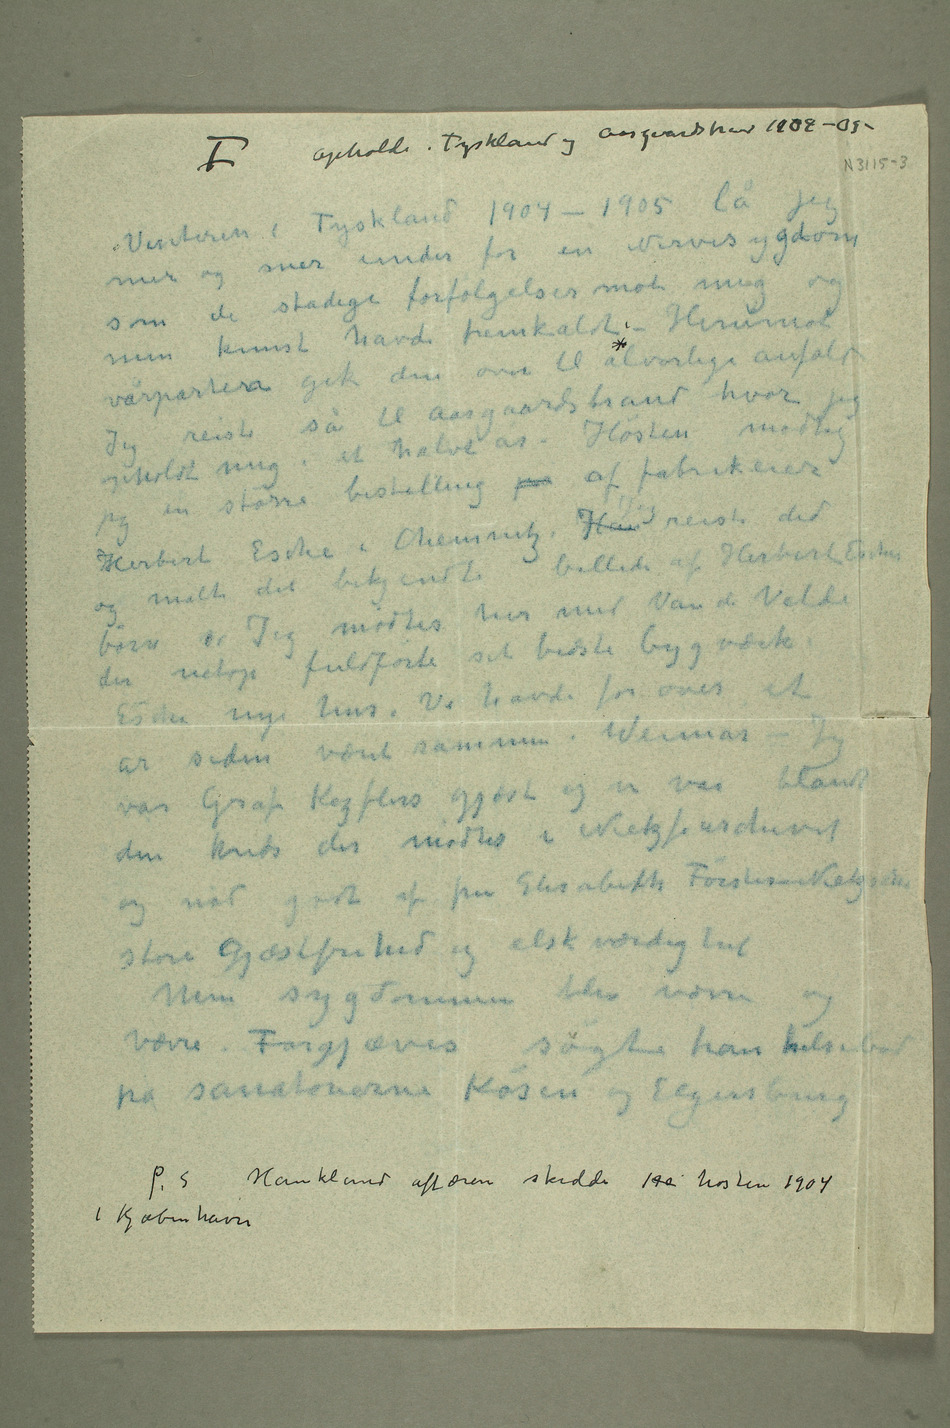 I opholdt i Tyskland og Aasgaardstrand 1902-05-
N3115-3
Vinteren i Tyskland 1904 – 1905 lå jeg
mer og mer under for en nervesygdom
som de stadige forfølgelser mote mig og
min kunst havde fremkaldt –
* Henimot
vårparten gik den over til alvorlige anfald
Jeg reiste så til Aasgaardstrand hvor jeg
opholdt mig i et halvt år. Høsten modtog
jeg en større bestilling på af fabrikeier
Herbert Esche i Chemnitz. Han Jeg reiste did
og malte det bekjendte billede af Herbert Esches
børn Jeg mødtes her med Van de Velde
der netop fuldførte sit bedste bygværk
Esches nye hus. Vi havde for over et
år siden været sammen i Weimar – Jeg
var Graf Kezflers gjæst og vi var blandt
den kreds der mødtes i Nietzschearchivet
og nød godt af fru Elisabeth Förster-Nietzsches
store Gjæstfrihed og elskværdighed
Min sygdommen blev værre og
værre. Forgjæves søgte han helsebod
på sanatorierne Kösen og Elgersburg
P.S Haukland affæren skedde i høsten 1904
i Kjøbenhavn